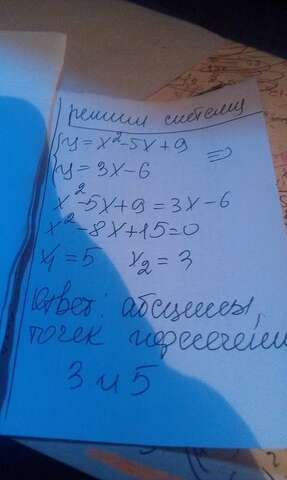 решим систему
{ y = x² - 5x + 9
{ y = 3x - 6 =>
x² - 5x + 9 = 3x - 6
x² - 8x + 15 = 0
x₁ = 5 x₂ = 3
Ответ: абсциссы
точек пересечения
3 и 5